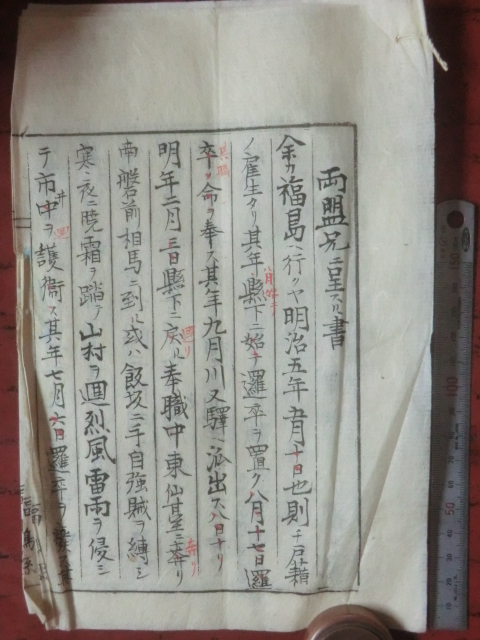 両盟兄ニ呈スル書
余カ福島ヘ行クヤ明治五年五月十日也則チ戸籍
ノ雇生タリ其年縣下ニ始テ邏卒ヲ置ク八月十七日邏
卒ノ命ヲ奉ス其年九月川又驛ヘ派出ス八日十リ
明年二月三日縣下ニ戻ル奉職中東仙臺ニ奔リ
南磐前相馬ニ到ル或ハ飯坂ニ手自強賊ヲ縛シ
寒夜ニ暁霜ヲ踏テ山村ヲ廻烈風雷雨ヲ侵シ
テ市中ヲ護衛ス其年七月六日邏卒ヲ
福島